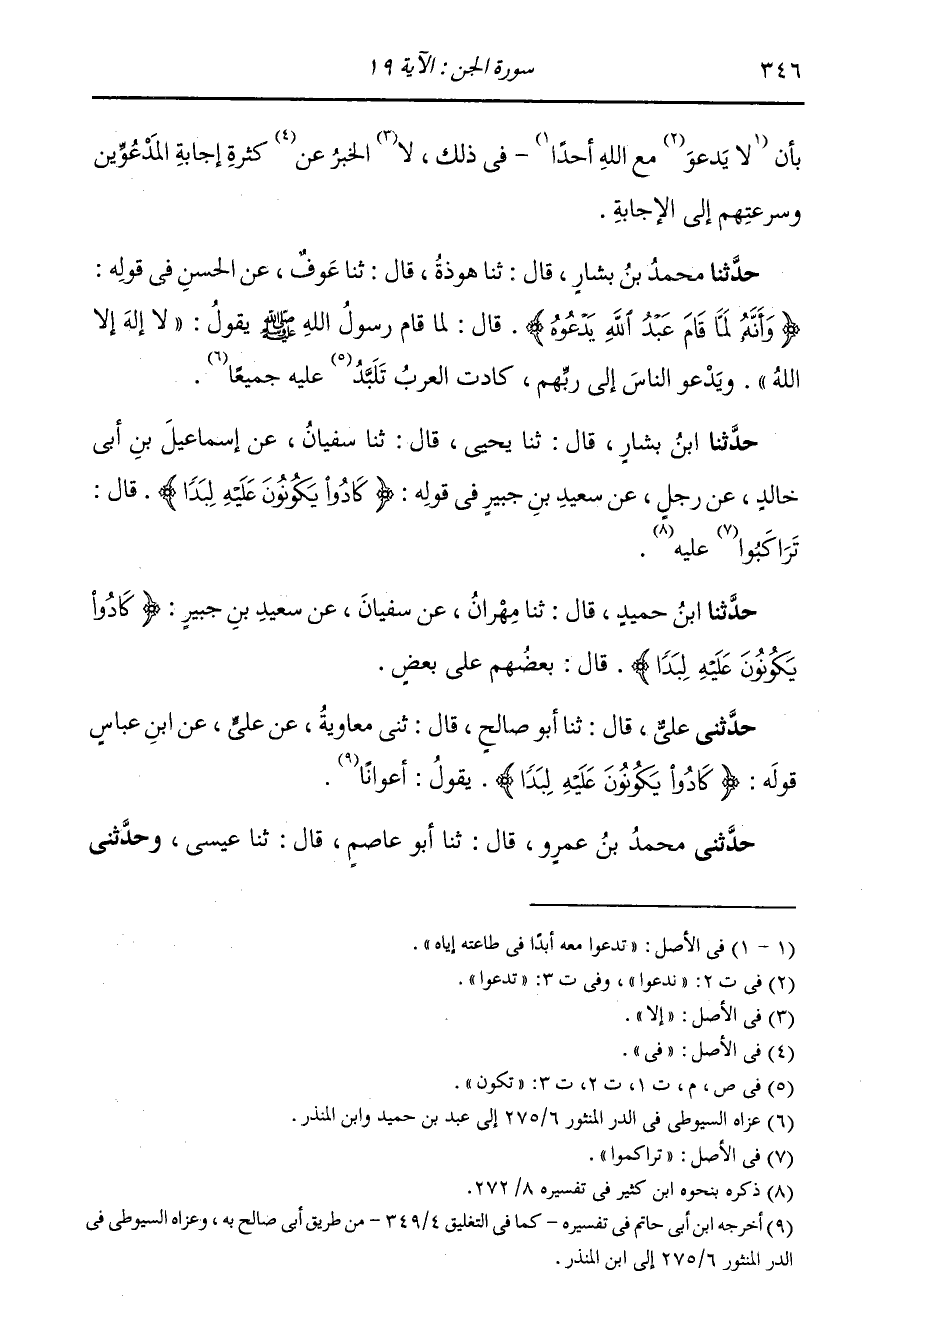 ٣٤٦ سورة الجن : الآية ١٩
بأن (١ لا يَدعوَ(٢) مع اللهِ أحدًا١) - فى ذلك ، لا(٣) الخبرُ عن(٤) كثرةِ إجابةِ المَدْعُوِّين
وسرعتِهم إلى الإجابةِ .
حدَّثنا محمدُ بنُ بشارٍ ، قال : ثنا هوذةُ ، قال : ثنا عَوفٌ ، عن الحسنِ فى قولِه :
﴿ وَأَنَّهُ لَمَّا قَامَ عَبْدُ ٱللَّهِ يَدْعُوهُ ﴾ . قال : لما قام رسولُ اللهِ ﷺ يقولُ : « لا إلهَ إلا
اللهُ » . ويَدْعو الناسَ إلى ربِّهم ، كادت العربُ تَلَبَّدُ(٥) عليه جميعًا(٦) .
حدَّثنا ابنُ بشارٍ ، قال : ثنا يحيى ، قال : ثنا سفيانُ ، عن إسماعيلَ بنِ أبى
خالدٍ ، عن رجلٍ ، عن سعيدِ بنِ جبيرٍ فى قولِه : ﴿ كَادُواْ يَكُونُونَ عَلَيْهِ لِبَدًا ﴾ . قال :
تَرَاكَبُوا(٧) عليه(٨) .
حدَّثنا ابنُ حميدٍ ، قال : ثنا مِهْرانُ ، عن سفيانَ ، عن سعيدِ بنِ جبيرٍ : ﴿ كَادُواْ
يَكُونُونَ عَلَيْهِ لِبَدًا ﴾ . قال : بعضُهم على بعضٍ .
حدَّثنى علىٌّ ، قال : ثنا أبو صالحٍ ، قال : ثنى معاويةُ ، عن علىٍّ ، عن ابنِ عباسٍ
قولَه : ﴿ كَادُواْ يَكُونُونَ عَلَيْهِ لِبَدًا ﴾ . يقولُ : أعوانًا(٩) .
حدَّثنى محمدُ بنُ عمرٍو ، قال : ثنا أبو عاصمٍ ، قال : ثنا عيسى ، وحدَّثنى
(١ - ١) فى الأصل : « تدعوا معه أبدًا فى طاعته إياه » .
(٢) فى ت ٢: « ندعوا » ، وفى ت ٣: « تدعوا » .
(٣) فى الأصل : « إلا » .
(٤) فى الأصل : « فى » .
(٥) فى ص ، م ، ت ١، ت ٢، ت ٣: « تكون » .
(٦) عزاه السيوطى فى الدر المنثور ٢٧٥/٦ إلى عبد بن حميد وابن المنذر .
(٧) فى الأصل : « تراكموا » .
(٨) ذكره بنحوه ابن كثير فى تفسيره ٨/ ٢٧٢.
(٩) أخرجه ابن أبى حاتم فى تفسيره - كما فى التغليق ٣٤٩/٤ - من طريق أبى صالح به ، وعزاه السيوطى فى
الدر المنثور ٢٧٥/٦ إلى ابن المنذر .